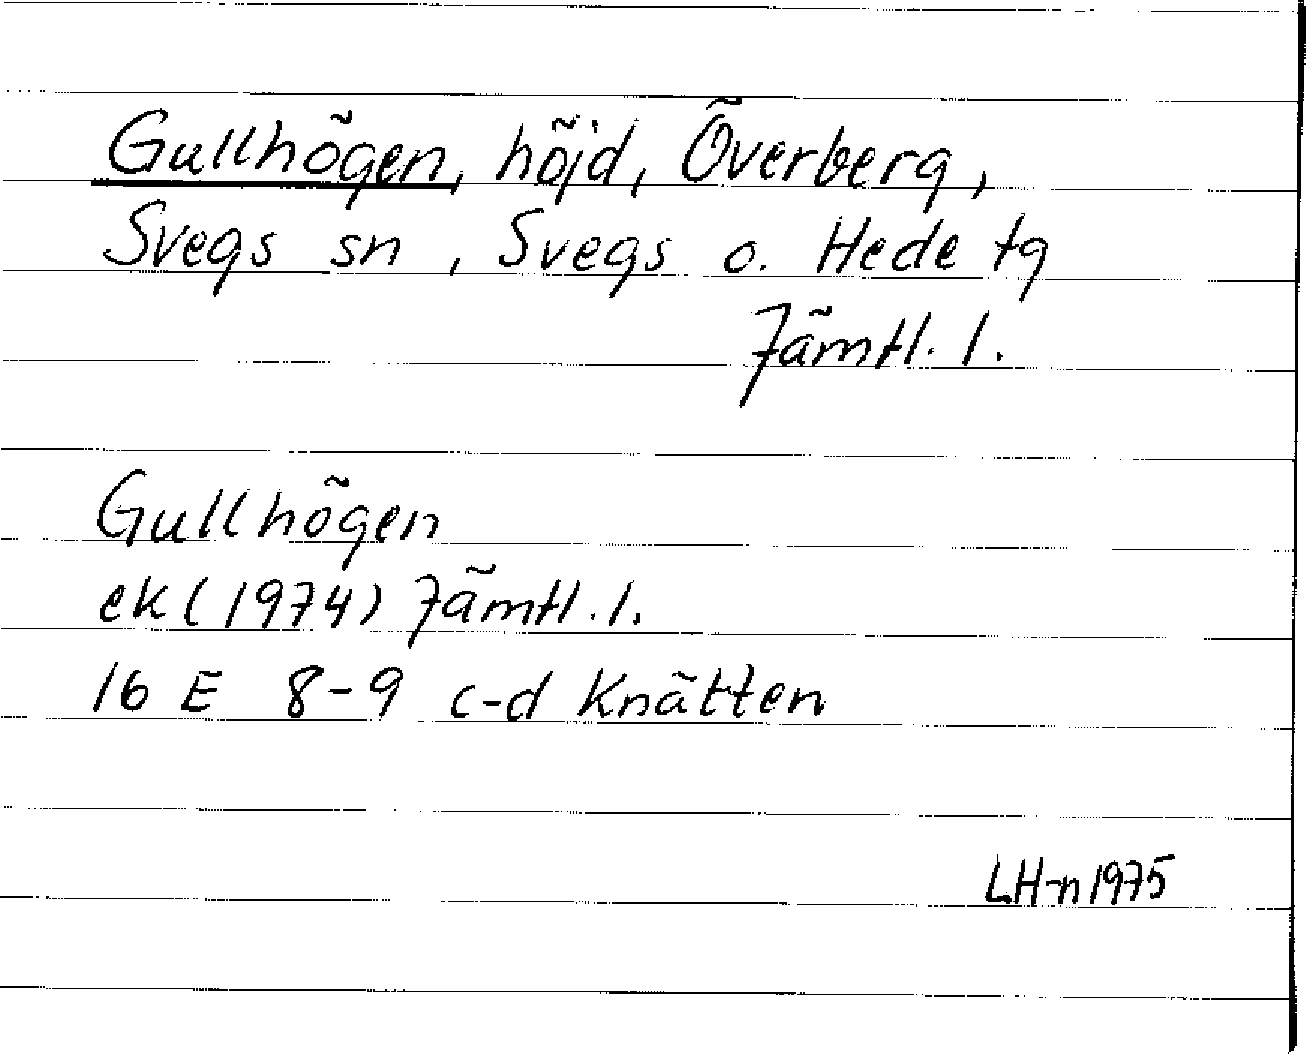 Gullhögen, höjd, Överberg,
Svegs sn, Svegs o. Hede tg
Jämtl. l.
Gullhögen
ek (1974) Jämtl. l.
16 E 8-9 c-d Knätten
LH-n 1975